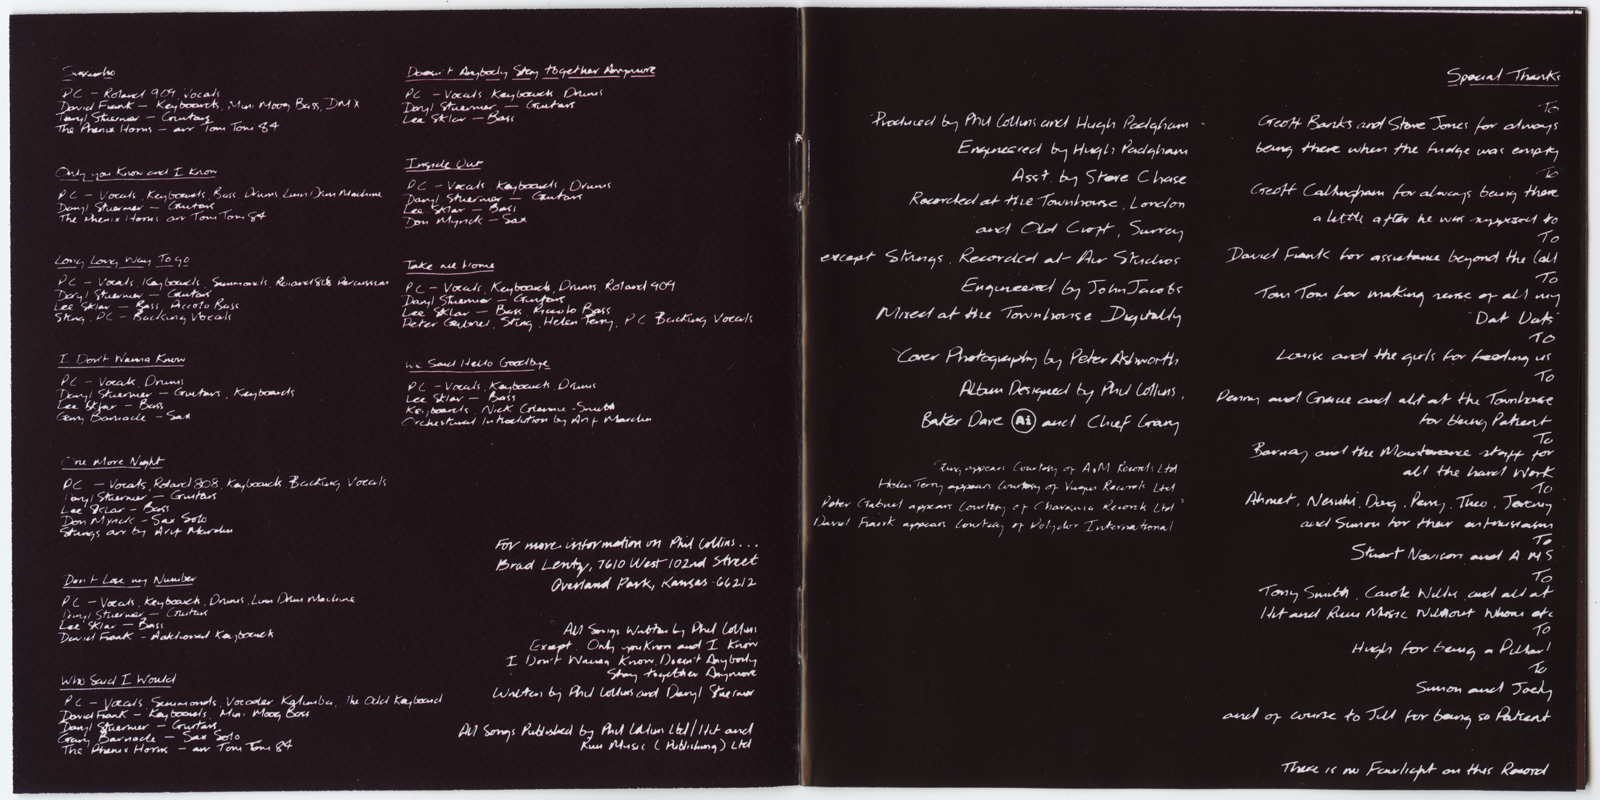 Sussudio
PC – Roland 909, Vocals
David Frank – Keyboards, Mini Moog Bass, DMX
Daryl Stuermer – Guitars
The Phenix Horns – arr Tom Tom 84
Only you Know and I Know
PC – Vocals, Keyboards, Bass Drums Linn Drum Machine
Daryl Stuermer – Guitars
The Phenix Horns arr Tom Tom 84
Long Long Way To go
PC – Vocals, Keyboards, Simmonds, Roland 808 Percussion
Daryl Stuermer – Guitars
Lee Sklar – Bass, Piccolo Bass
Sting, PC – Backing Vocals
I Don't Wanna Know
PC – Vocals Drums
Daryl Stuermer – Guitars, Keyboards
Lee Sklar – Bass
Gary Barnacle – Sax
One More Night
PC – Vocals, Roland 808, Keyboards Backing Vocals
Daryl Stuermer – Guitars
Lee Sklar – Bass
Don Myrick – Sax Solo
Strings arr by Arif Mardin
Don't Lose my Number
PC – Vocals, Keyboards, Drums, Linn Drum Machine
Daryl Stuermer – Guitars
Lee Sklar – Bass
David Frank – Additional Keyboards
Who Said I Would
PC – Vocals Simmonds, Vocoder Kalimba, the Odd Keyboard
David Frank – Keyboards, Mini Moog Bass
Daryl Stuermer – Guitars
Gary Barnacle – Sax Solo
The Phenix Horns – arr Tom Tom 84
Doesn't Anybody Stay together Anymore
PC – Vocals, Keyboards, Drums
Daryl Stuermer – Guitars
Lee Sklar – Bass
Inside Out
PC – Vocals, Keyboards, Drums
Daryl Stuermer – Guitars
Lee Sklar – Bass
Don Myrick – Sax
Take me Home
PC – Vocals, Keyboards, Drums, Roland 909
Daryl Stuermer – Guitars
Lee Sklar – Bass Piccolo Bass
Peter Gabriel, Sting, Helen Terry, PC Backing Vocals
We Said Hello Goodbye
PC – Vocals, Keyboards, Drums
Lee Sklar – Bass
Keyboards, Nick Glennie-Smith
Orchestral Introduction by Arif Mardin
For more information on Phil Collins...
Brad Lentz, 7610 West 102nd Street
Overland Park, Kansas 66212
All Songs Written by Phil Collins
Except, Only you Know and I Know
I Don't Wanna Know, Doesn't Anybody
Stay together Anymore
Written by Phil Collins and Daryl Stuermer
All Songs Published by Phil Collins Ltd/Hit and
Run Music (Publishing) Ltd
Produced by Phil Collins and Hugh Padgham
Engineered by Hugh Padgham
Asst. by Steve Chase
Recorded at the Townhouse, London
and Old Croft, Surrey
except Strings. Recorded at Air Studios
Engineered by John Jacobs
Mixed at the Townhouse Digitally
Cover Photography by Peter Ashworth
Album Designed by Phil Collins,
Baker Dave Ai and Chief Grany
Sting appears Courtesy of A&M Records Ltd
Helen Terry appears Courtesy of Virgin Records Ltd
Peter Gabriel appears Courtesy of Charisma Records Ltd
David Frank appears Courtesy of Polydor International
Special Thanks
To
Geoff Banks and Steve Jones for always
being there when the fridge was empty
To
Geoff Callingham for always being there
a little after he was supposed to
To
David Frank for assistance beyond the Call
To
Tom Tom for making sense of all my
"Dat Dats"
To
Louise and the girls for feeding us
To
Penny and Gracie and all at the Townhouse
for being Patient
To
Barney and the Maintenance staff for
all the hard Work
To
Ahmet, Nesuhi, Doug, Perry, Theo, Jeremy
and Simon for their enthusiasm
To
Stuart Nevison and AMS
To
Tony Smith, Carole Willis, and all at
Hit and Run Music Without Whom etc
To
Hugh for being a Pillar!
To
Simon and Joely
and of course to Jill for being so Patient
There is no Fairlight on this Record